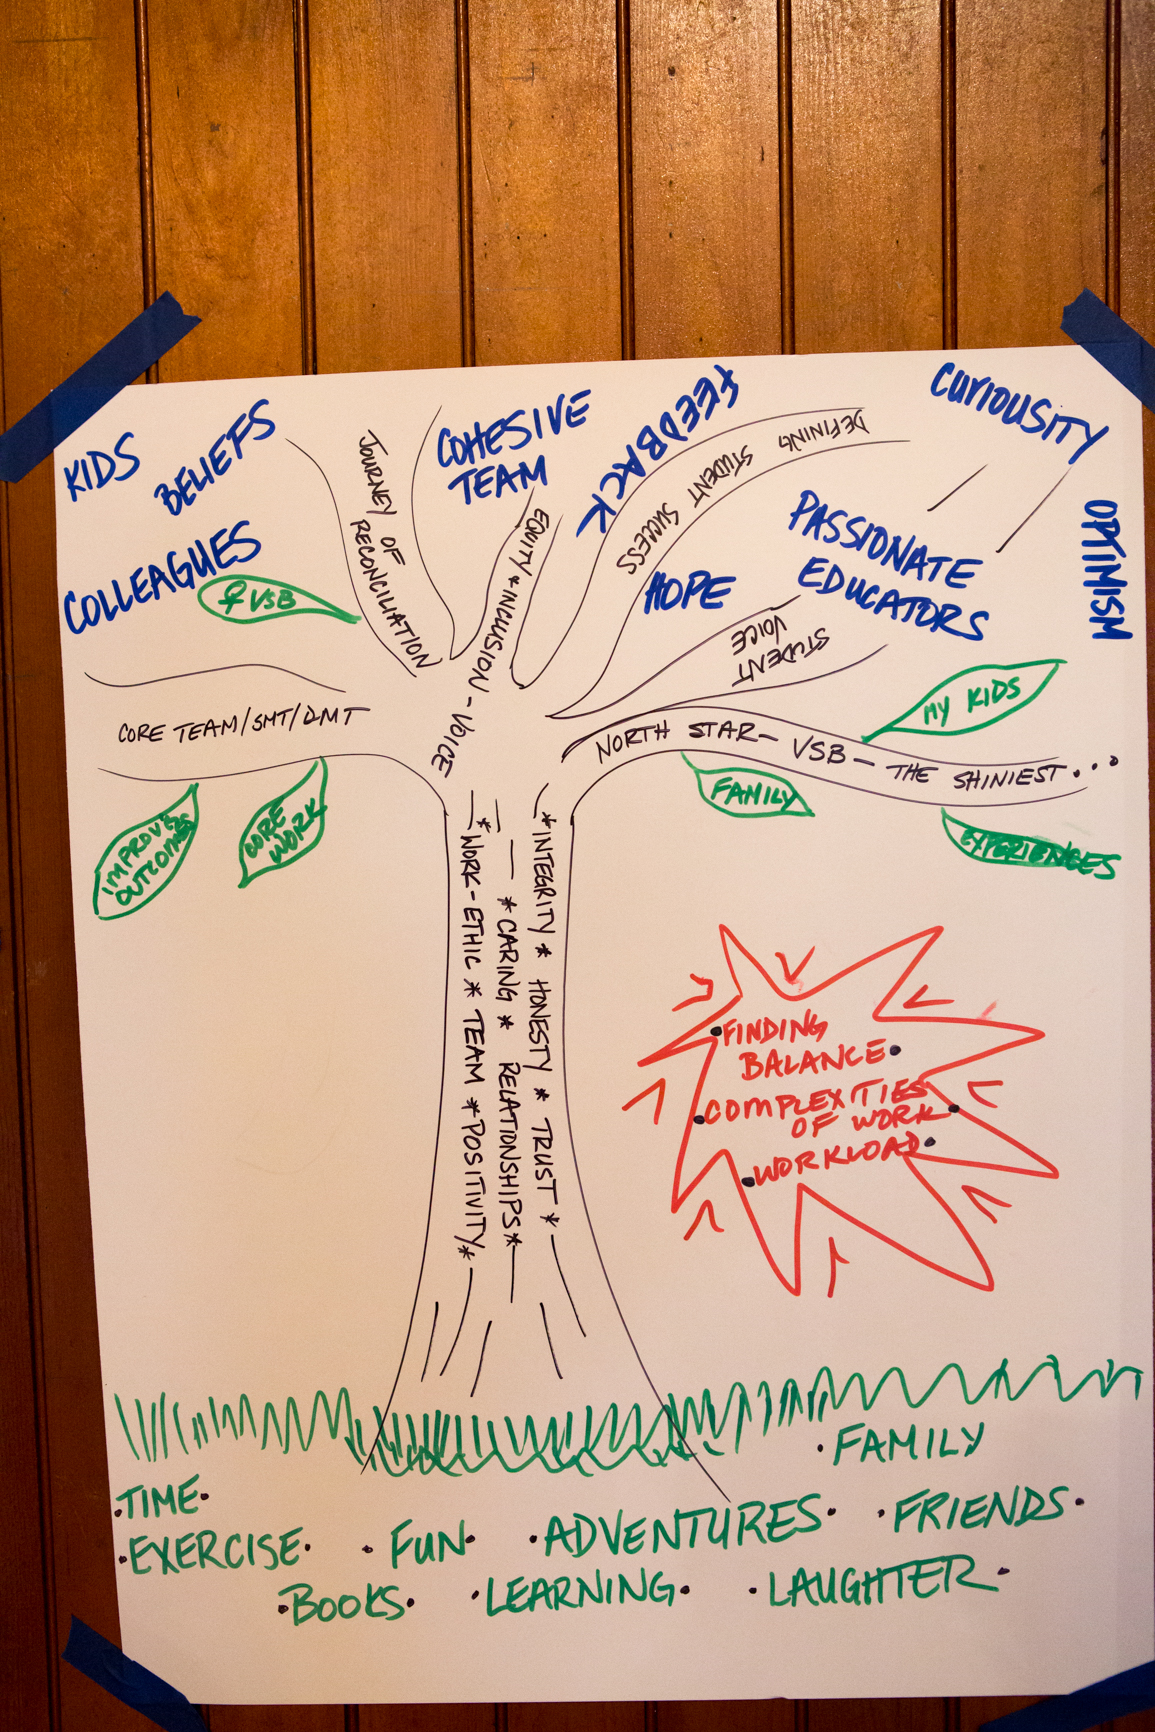 KIDS
BELIEFS
COLLEAGUES
♀ VSB
JOURNEY OF
RECONCILIATION
COHESIVE
TEAM
EQUITY & INCLUSION - VOICE
FEEDBACK
DEFINING STUDENT SUCCESS
CURIOUSITY
PASSIONATE
EDUCATORS
OPTIMISM
HOPE
STUDENT
VOICE
CORE TEAM/SMT/DMT
NORTH STAR - VSB - THE SHINIEST...
MY KIDS
FAMILY
EXPERIENCES
IMPROVE
OUTCOMES
CORE
WORK
*INTEGRITY * HONESTY * TRUST *
* CARING * RELATIONSHIPS*
*WORK-ETHIC * TEAM * POSITIVITY*
•FINDING
BALANCE•
•COMPLEXITIES
OF WORK•
•WORKLOAD•
•FAMILY
•TIME•
•EXERCISE•
•FUN•
•ADVENTURES•
•FRIENDS•
•BOOKS•
•LEARNING•
•LAUGHTER•